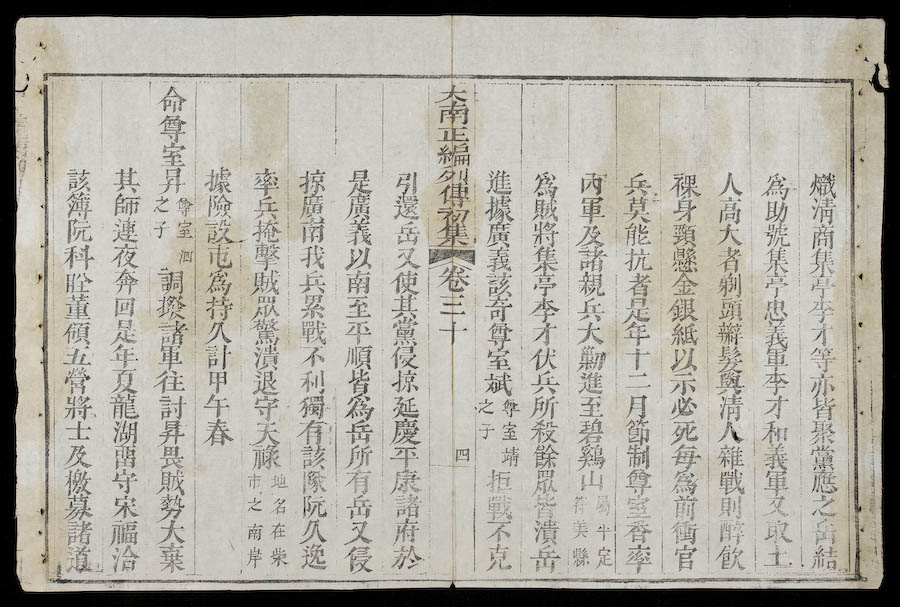 熾淸商集亭李才等亦皆聚黨應之岳結
為助號集亭忠義軍李才和義軍又取土
人高大者剃頭辮髮與淸人雜戰則醉飮
裸身頸懸金銀紙以示必死每為前衝官
兵莫能抗者是年十二月節制尊室香率
內軍及諸親兵大勦進至碧鷄山屬平定符美縣
為賊將集亭李才伏兵所殺餘眾皆潰岳
進據廣義該奇尊室斌尊室靖之子拒戰不克
大南正編列傳初集 卷三十 四
引還岳又使其黨侵掠延慶平康諸府於
是廣義以南至平順皆為岳所有岳又侵
掠廣南我兵累戰不利獨有該隊阮久逸
率兵掩擊賊眾驚潰退守天祿地名在柴市之南岸
據險設屯為持久計甲午春
命尊室昇尊室泗之子調撥諸軍往討昇畏賊勢大棄
其師連夜奔回是年夏龍湖畱守宋福洽
該簿阮科𨩐董領五營將士及檄募諸道